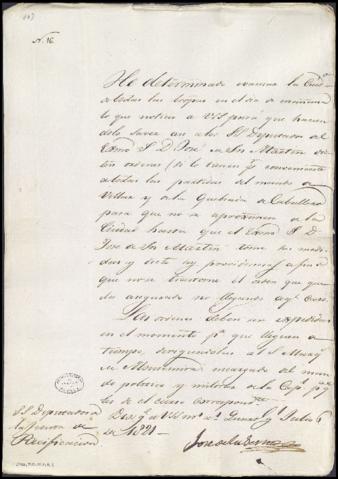 N. 16
He determinado evacuar la
todas las tropas en el dia de mañana
lo que noticio a VSS para que hacien
dolo saver a los SS Diputados del
Exmo S. D. Jose de San Martin
ordenes (si lo tienen p.r conveniente
a todas las partidas del mando de
Villar y de la Quebrada de Caballero
para que no se aproximen a la
Ciudad hasta que el Exmo S. D.
Jose de San Martin tome las medi
das y dicte las providencias a fin de
que no se trastorne el orden que que
da asegurado
Las ordenes deben ser expedidas
en el momento p.a que lleguen a
tiempo, dirigiendolas al S. Marq.s
de Montemira encargado del man
do politico y militar de la Cap.l p.a q.e
les de el curso correspond.te
Dios g.e a VSS m.s a.s Lima y Julio 5
de 1821.
Jose de la Serna
SS. Diputados de
la Junta de
Pacificacion.